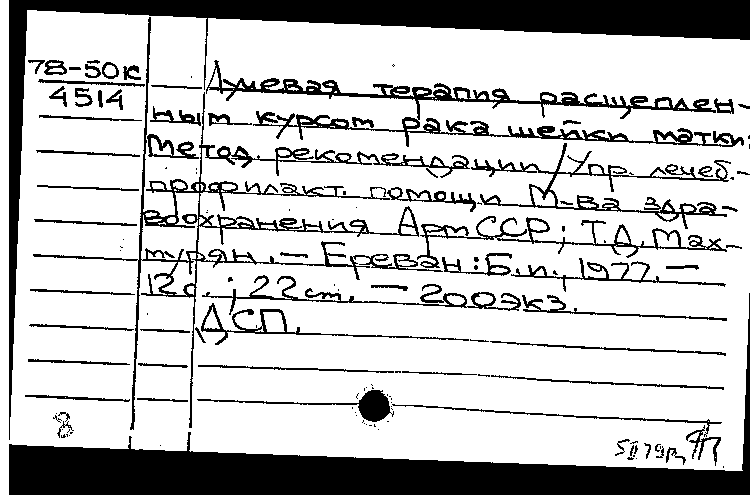 78-50к
4514
Лучевая терапия расщеплен-
ным курсом рака шейки матки:
Метод. рекомендации / Упр. лечеб.-
профилакт. помощи М-ва здра-
воохранения Арм ССР; Т.Д. Мах-
мурян. — Ереван: Б.и., 1977. —
12 с.; 22 см. — 200 экз.
ДСП.
8